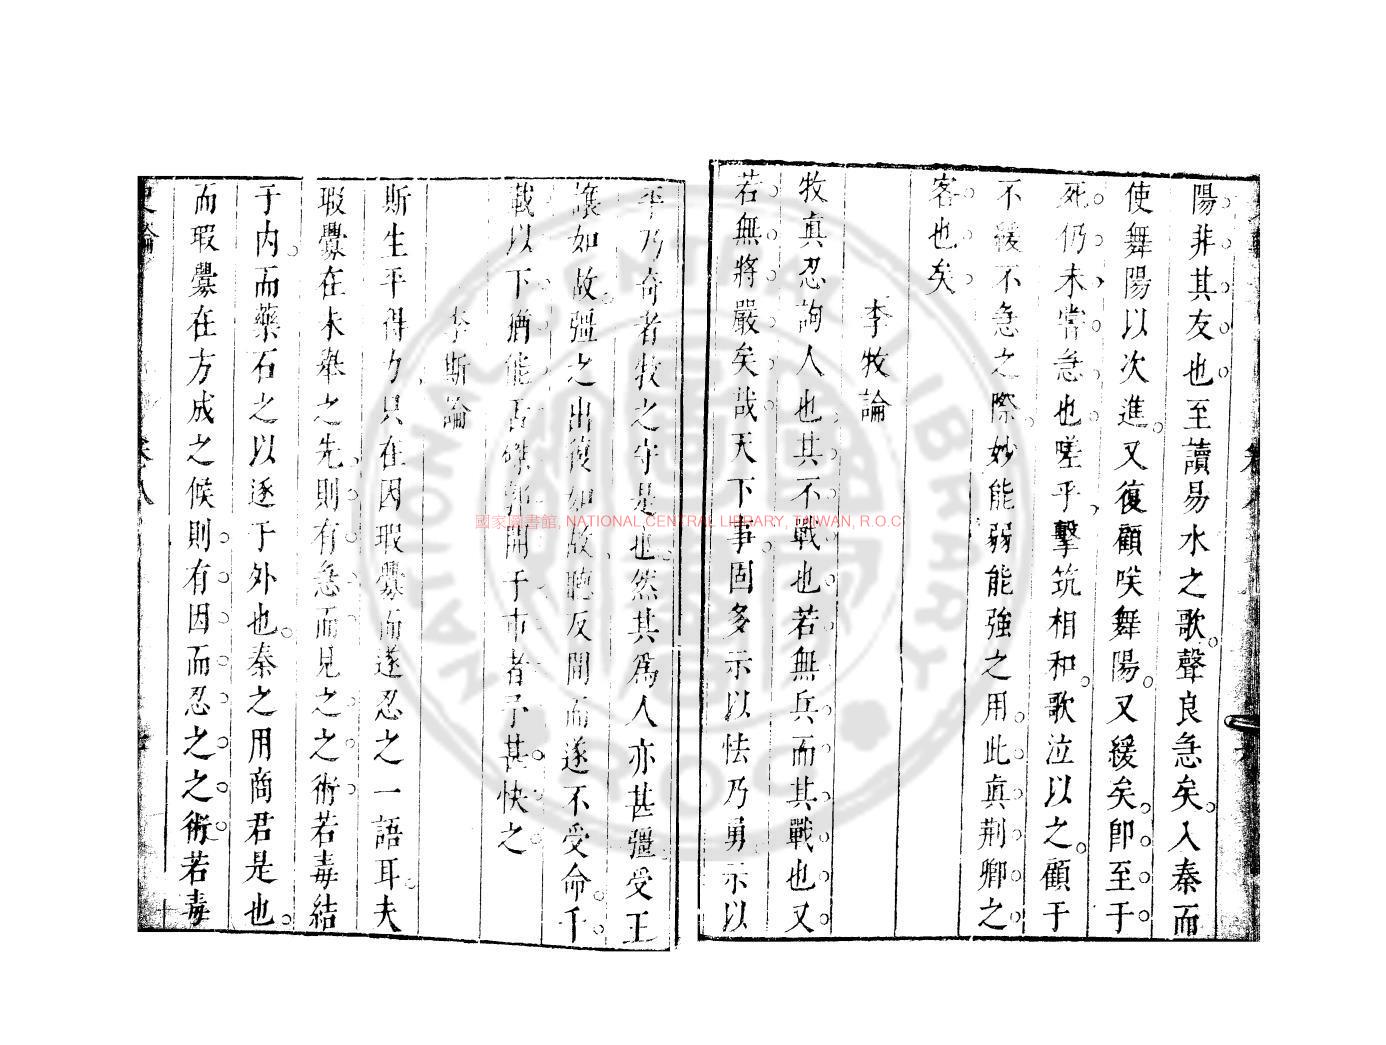 陽非其友也至讀易水之歌聲良急矣入秦而
使舞陽以次進又復顧唉舞陽又緩矣即至于
死仍未嘗急也嗟乎擊筑相和歌泣以之顧于
不緩不急之際妙能弱能強之用此真荆卿之
客也矣
李牧論
牧真忍詢人也其不戰也若無兵而其戰也又
若無將嚴矣哉天下事固多示以怯乃勇示以
平乃奇者牧之守是也然其爲人亦甚彊受王
讓如故彊之出復如故聴反間而遂不受命千
載以下猶能舌磔郭開于市者予甚快之
李斯論
斯生平得力只在因瑕釁而遂忍之一語耳夫
瑕釁在未舉之先則有急而見之之術若毒結
于内而藥石之以逐于外也秦之用商君是也
而瑕釁在方成之候則有因而忍之之術若毒
史論
卷八
十
國家圖書館, NATIONAL CENTRAL LIBRARY, TAIWAN, R.O.C
NATIONAL CENTRAL LIBRARY
ROC